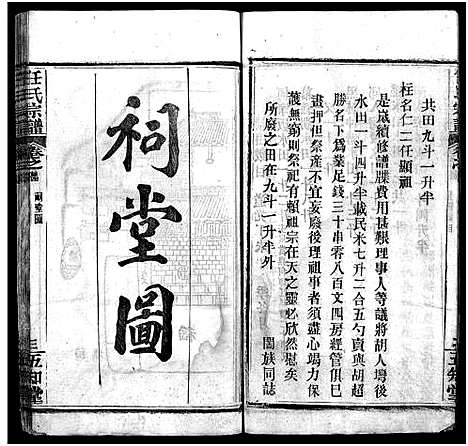 共田九斗一升半
柱名仁二任顯祖
是歲續修譜牒費用甚艱理事人等議將胡人灣後
水田一斗四升半載民米七升二合五勺賣與胡超
勝名下為業足錢三十串零八百文四房經管俱已
畫押但祭產不宜妄廢後理祖事者須盡心竭力保
護無窮則祭祀有賴祖宗在天之靈必欣然慰矣
所廢之田在九斗一升半外
闔族同誌
五知堂
祠堂圖
任氏宗譜
祠堂圖
五知堂